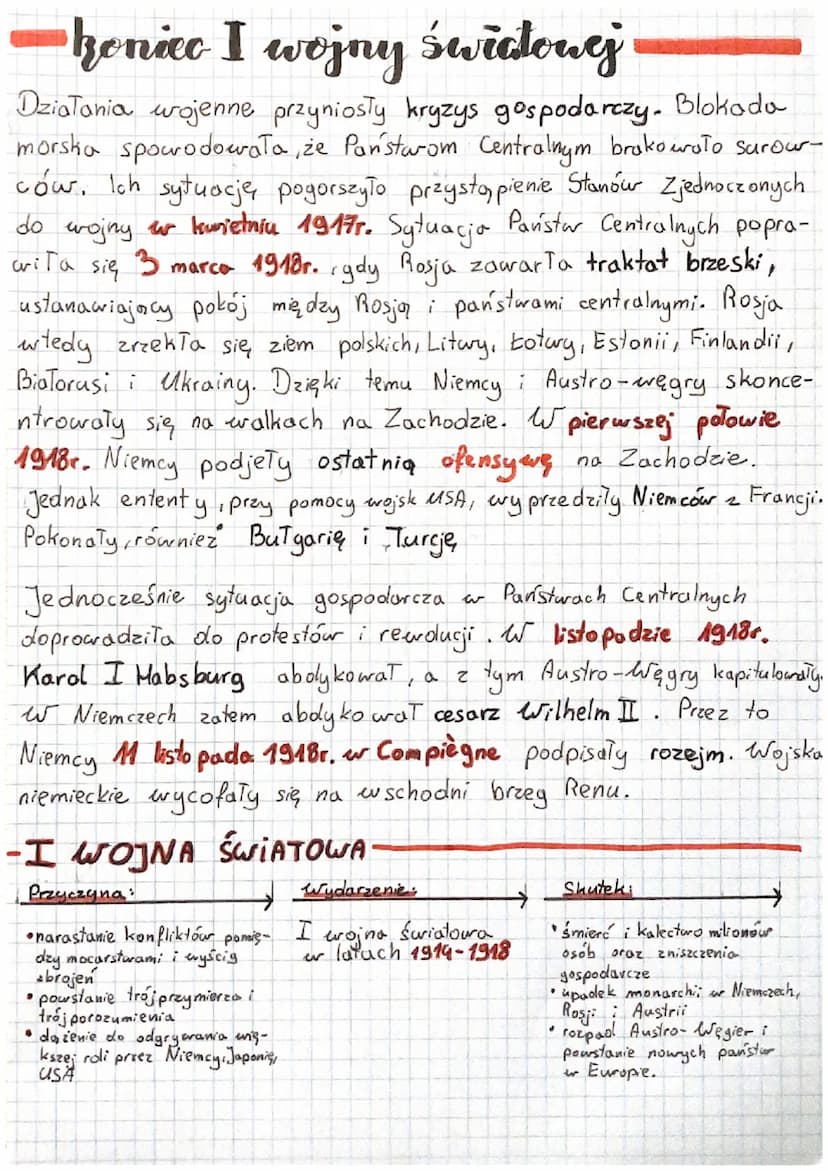 koniec I wojny światowej
Działania wojenne przyniosły kryzys gospodarczy. Blokada
morska spowodowała, że Państwom Centralnym brakowało surow-
ców. Ich sytuację pogorszyło przystąpienie Stanów Zjednoczonych
do wojny w kwietniu 1917r. Sytuacja Państw Centralnych popra-
wiła się 3 marca 1918r., gdy Rosja zawarła traktat brzeski,
ustanawiający pokój między Rosją i państwami centralnymi. Rosja
wtedy zrzekła się ziem polskich, Litwy, Łotwy, Estonii, Finlandii,
Białorusi i Ukrainy. Dzięki temu Niemcy i Austro-węgry skonce-
ntrowały się na walkach na Zachodzie. W pierwszej połowie
1918r. Niemcy podjęły ostatnią ofensywę na Zachodzie.
Jednak ententy, przy pomocy wojsk USA, wyprzedziły Niemców z Francji.
Pokonały, również Bułgarię i Turcję
Jednocześnie sytuacja gospodarcza w Państwach Centralnych
doprowadziła do protestów i rewolucji. W listopadzie 1918r.
Karol I Habsburg abdykował, a z tym Austro-Węgry kapitulowały.
W Niemczech zatem abdykował cesarz Wilhelm II. Przez to
Niemcy 11 listopada 1918r. w Compiègne podpisały rozejm. Wojska
niemieckie wycofały się na wschodni brzeg Renu.
-I WOJNA ŚWIATOWA
Przyczyna: Wydarzenie: Skutek:
•narastanie konfliktów pomię-
dzy mocarstwami i wyścig
zbrojeń
• powstanie trójprzymierza i
trójporozumienia
• dążenie do odgrywania wię-
kszej roli przez Niemcy, Japonię,
USA
I wojna światowa
w latach 1914-1918
• śmierć i kalectwo milionów
osób oraz zniszczenia
gospodarcze
• upadek monarchii w Niemczech,
Rosji i Austrii
• rozpad Austro-Węgier i
powstanie nowych państw
w Europie.